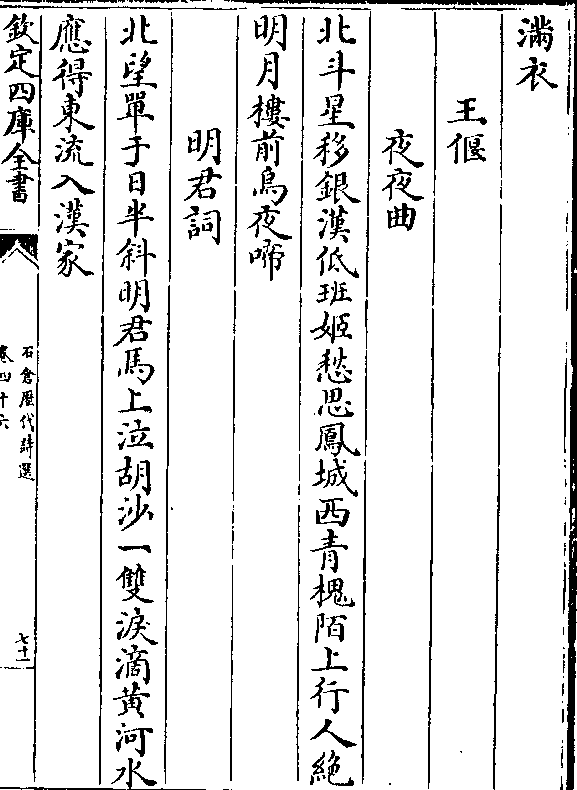 滿衣
王偃
夜夜曲
北斗星移銀漢低班姬愁思鳳城西青槐陌上行人絶
明月樓前烏夜啼
明君詞
北望單于日半斜明君馬上泣胡沙一雙淚滴黄河水
應得東流入漢家
欽定四庫全書
石倉歴代詩選
卷四十六
七十一